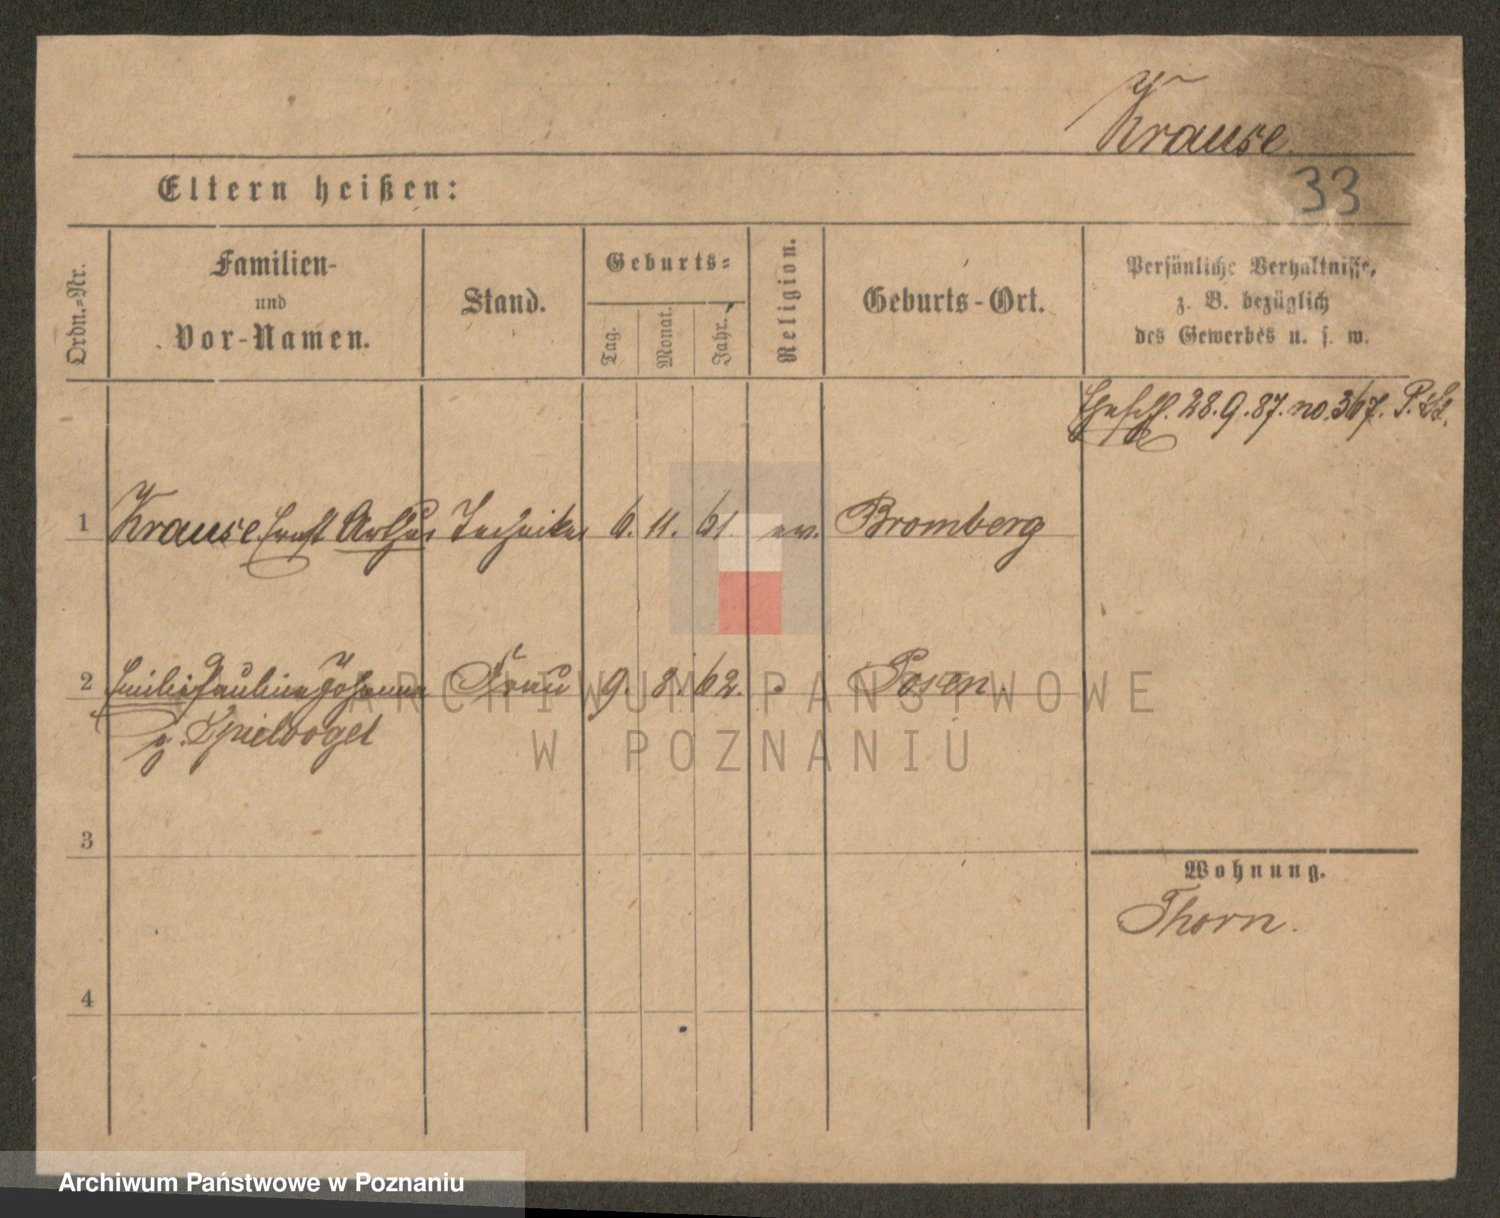 Krause.
33
Eltern heißen:
Ordn.-Nr.
Familien-
und
Vor-Namen.
Stand.
Geburts-
Tag.
Monat.
Jahr.
Religion.
Geburts-Ort.
Persönliche Verhältnisse,
z. B. bezüglich
des Gewerbes u. s. w.
28.9.87. no. 367.
1 Krause Ernst Arthur Techniker 6. 11. 61. ev. Bromberg
2 Emilie Pauline Johanna Frau 9. 8. 62. " Posen
g. Spielvogel
3
Wohnung.
Thorn.
4
ARCHIWUM PAŃSTWOWE
W POZNANIU
Archiwum Państwowe w Poznaniu